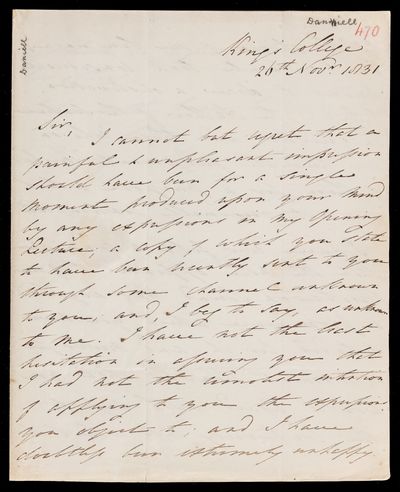 Daniell
Daniell,
470
King's College
26th Novr. 1831
Sir,
I cannot but regret that a
painful & unpleasant impression
should have been for a single
moment produced upon your mind
by any expressions in my Opening
Lecture, a copy of which you state
to have been recently sent to you
through some channel unknown
to you; and, I beg to say, as unknown
to me. I have not the least
hesitation in assuring you that
I had not the remotest intention
of applying to you the expressions
you object to; and I have
doubtless been extremely unhappy